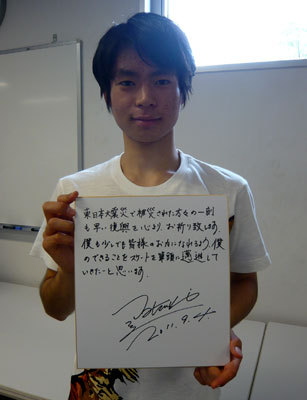 東日本大震災で被災された方々の一刻
も早い復興を心より、お祈り致します。
僕も少しでも皆様のお力になれるよう、僕
のできることをスケートを筆頭に邁進して
いきたいと思います。
2011.9.4